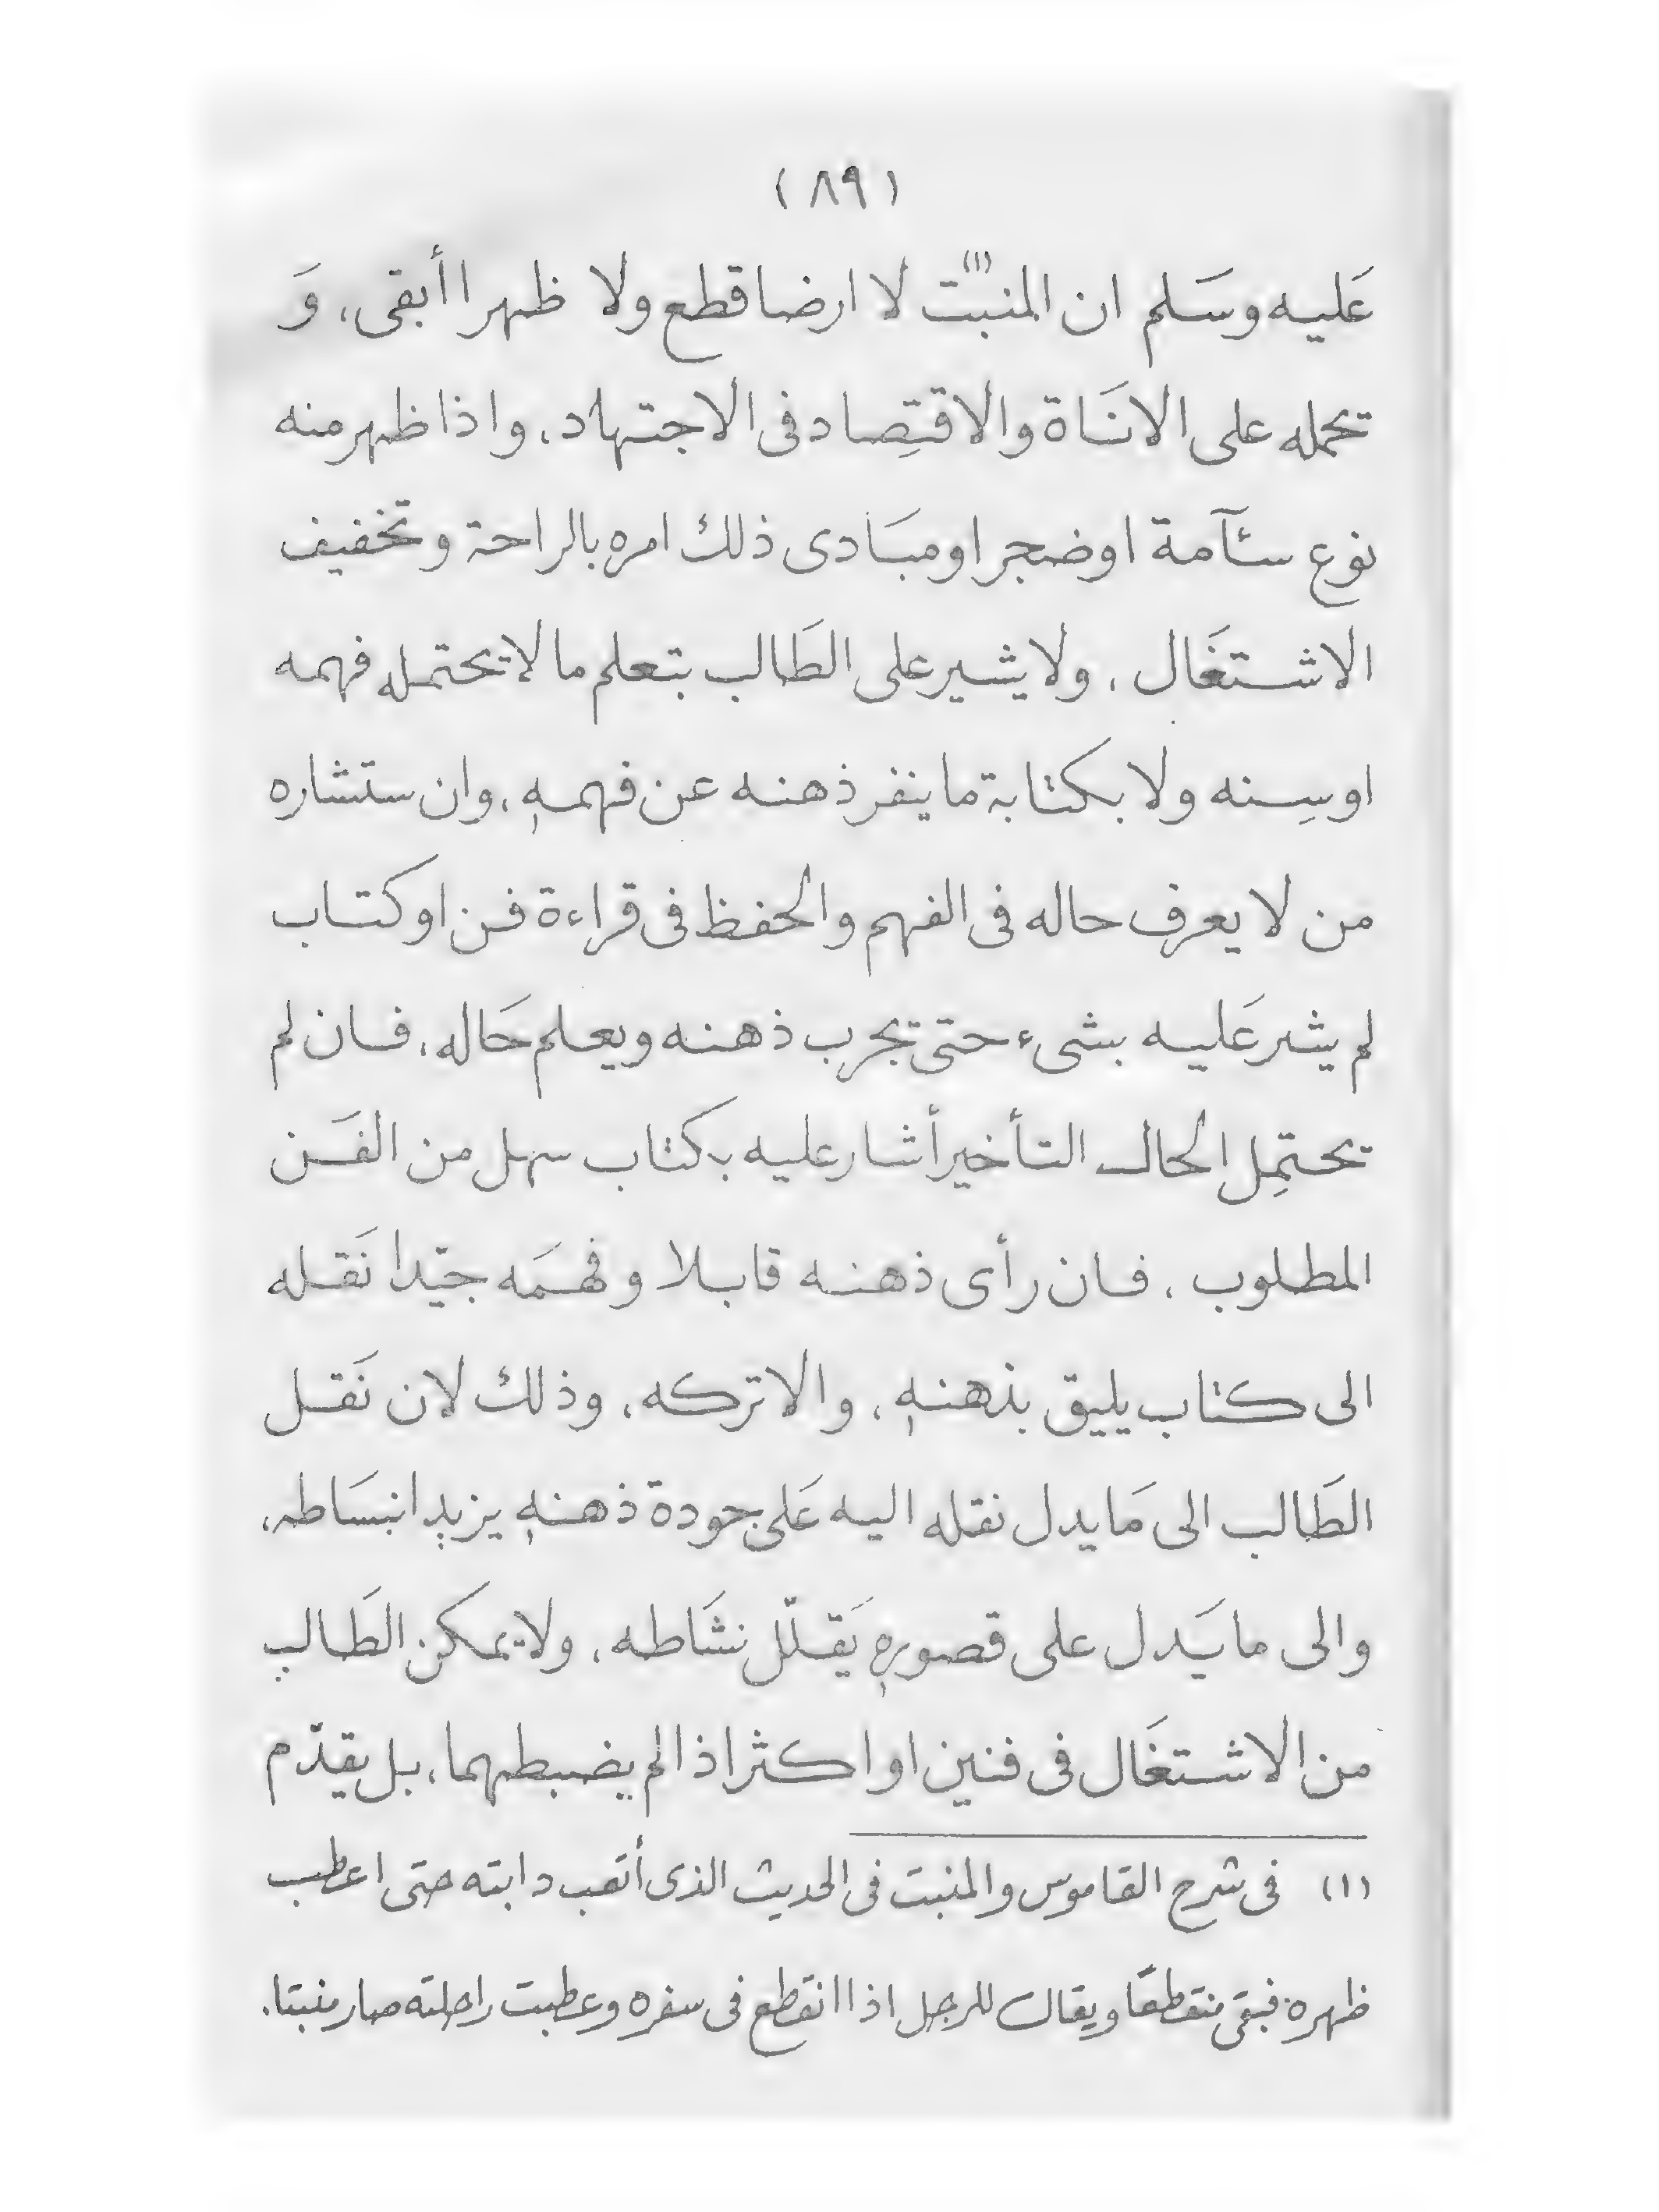 (٨٩)
عَليه وسَلم ان المنبت (١) لا ارضا قطع ولا ظهرا أبقى، وَ
تحمله على الانَاة والاقتِصاد فى الاجتهاد، واذا ظهر منه
نوع سئآمة او ضجر او مبَادى ذلك امره بالراحة وتخفيف
الاشتغَال، ولا يشير على الطَالب بتعلم ما لا تحتمله فهمه
او سِنه ولا بكتابة ما ينفر ذهنه عن فهمهٖ، وان ستشاره
من لا يعرف حاله فى الفهم والحفظ فى قراءة فن او كتاب
لم يشر عَليه بشىء حتى تجرب ذهنه ويعلم حَاله، فان لم
تحتمِل الحال التأخير أشار عليه بكتاب سهل من الفَن
المطلوب، فان رأى ذهنه قابلا وفهمَه جيّدا نَقله
الى كتاب يليق بذهنهٖ، والا تركه، وذلك لان نَقل
الطَالب الى مَا يدل نقله اليه عَلى جودة ذهنهٖ يزيد انبسَاطه،
والى ما يَدل على قصورهٖ يَقلّل نشَاطه، ولا يمكن الطَالب
من الاشتغَال فى فنين او اكثر اذا لم يضبطهما، بل يقدّم
(١) فى شرح القاموس والمنبت فى الحديث الذى أتعب دابته حتى اعطب
ظهره فبقى منقطعًا ويقال للرجل اذا انقطع فى سفره وعطبت راحلته صار منبتا.